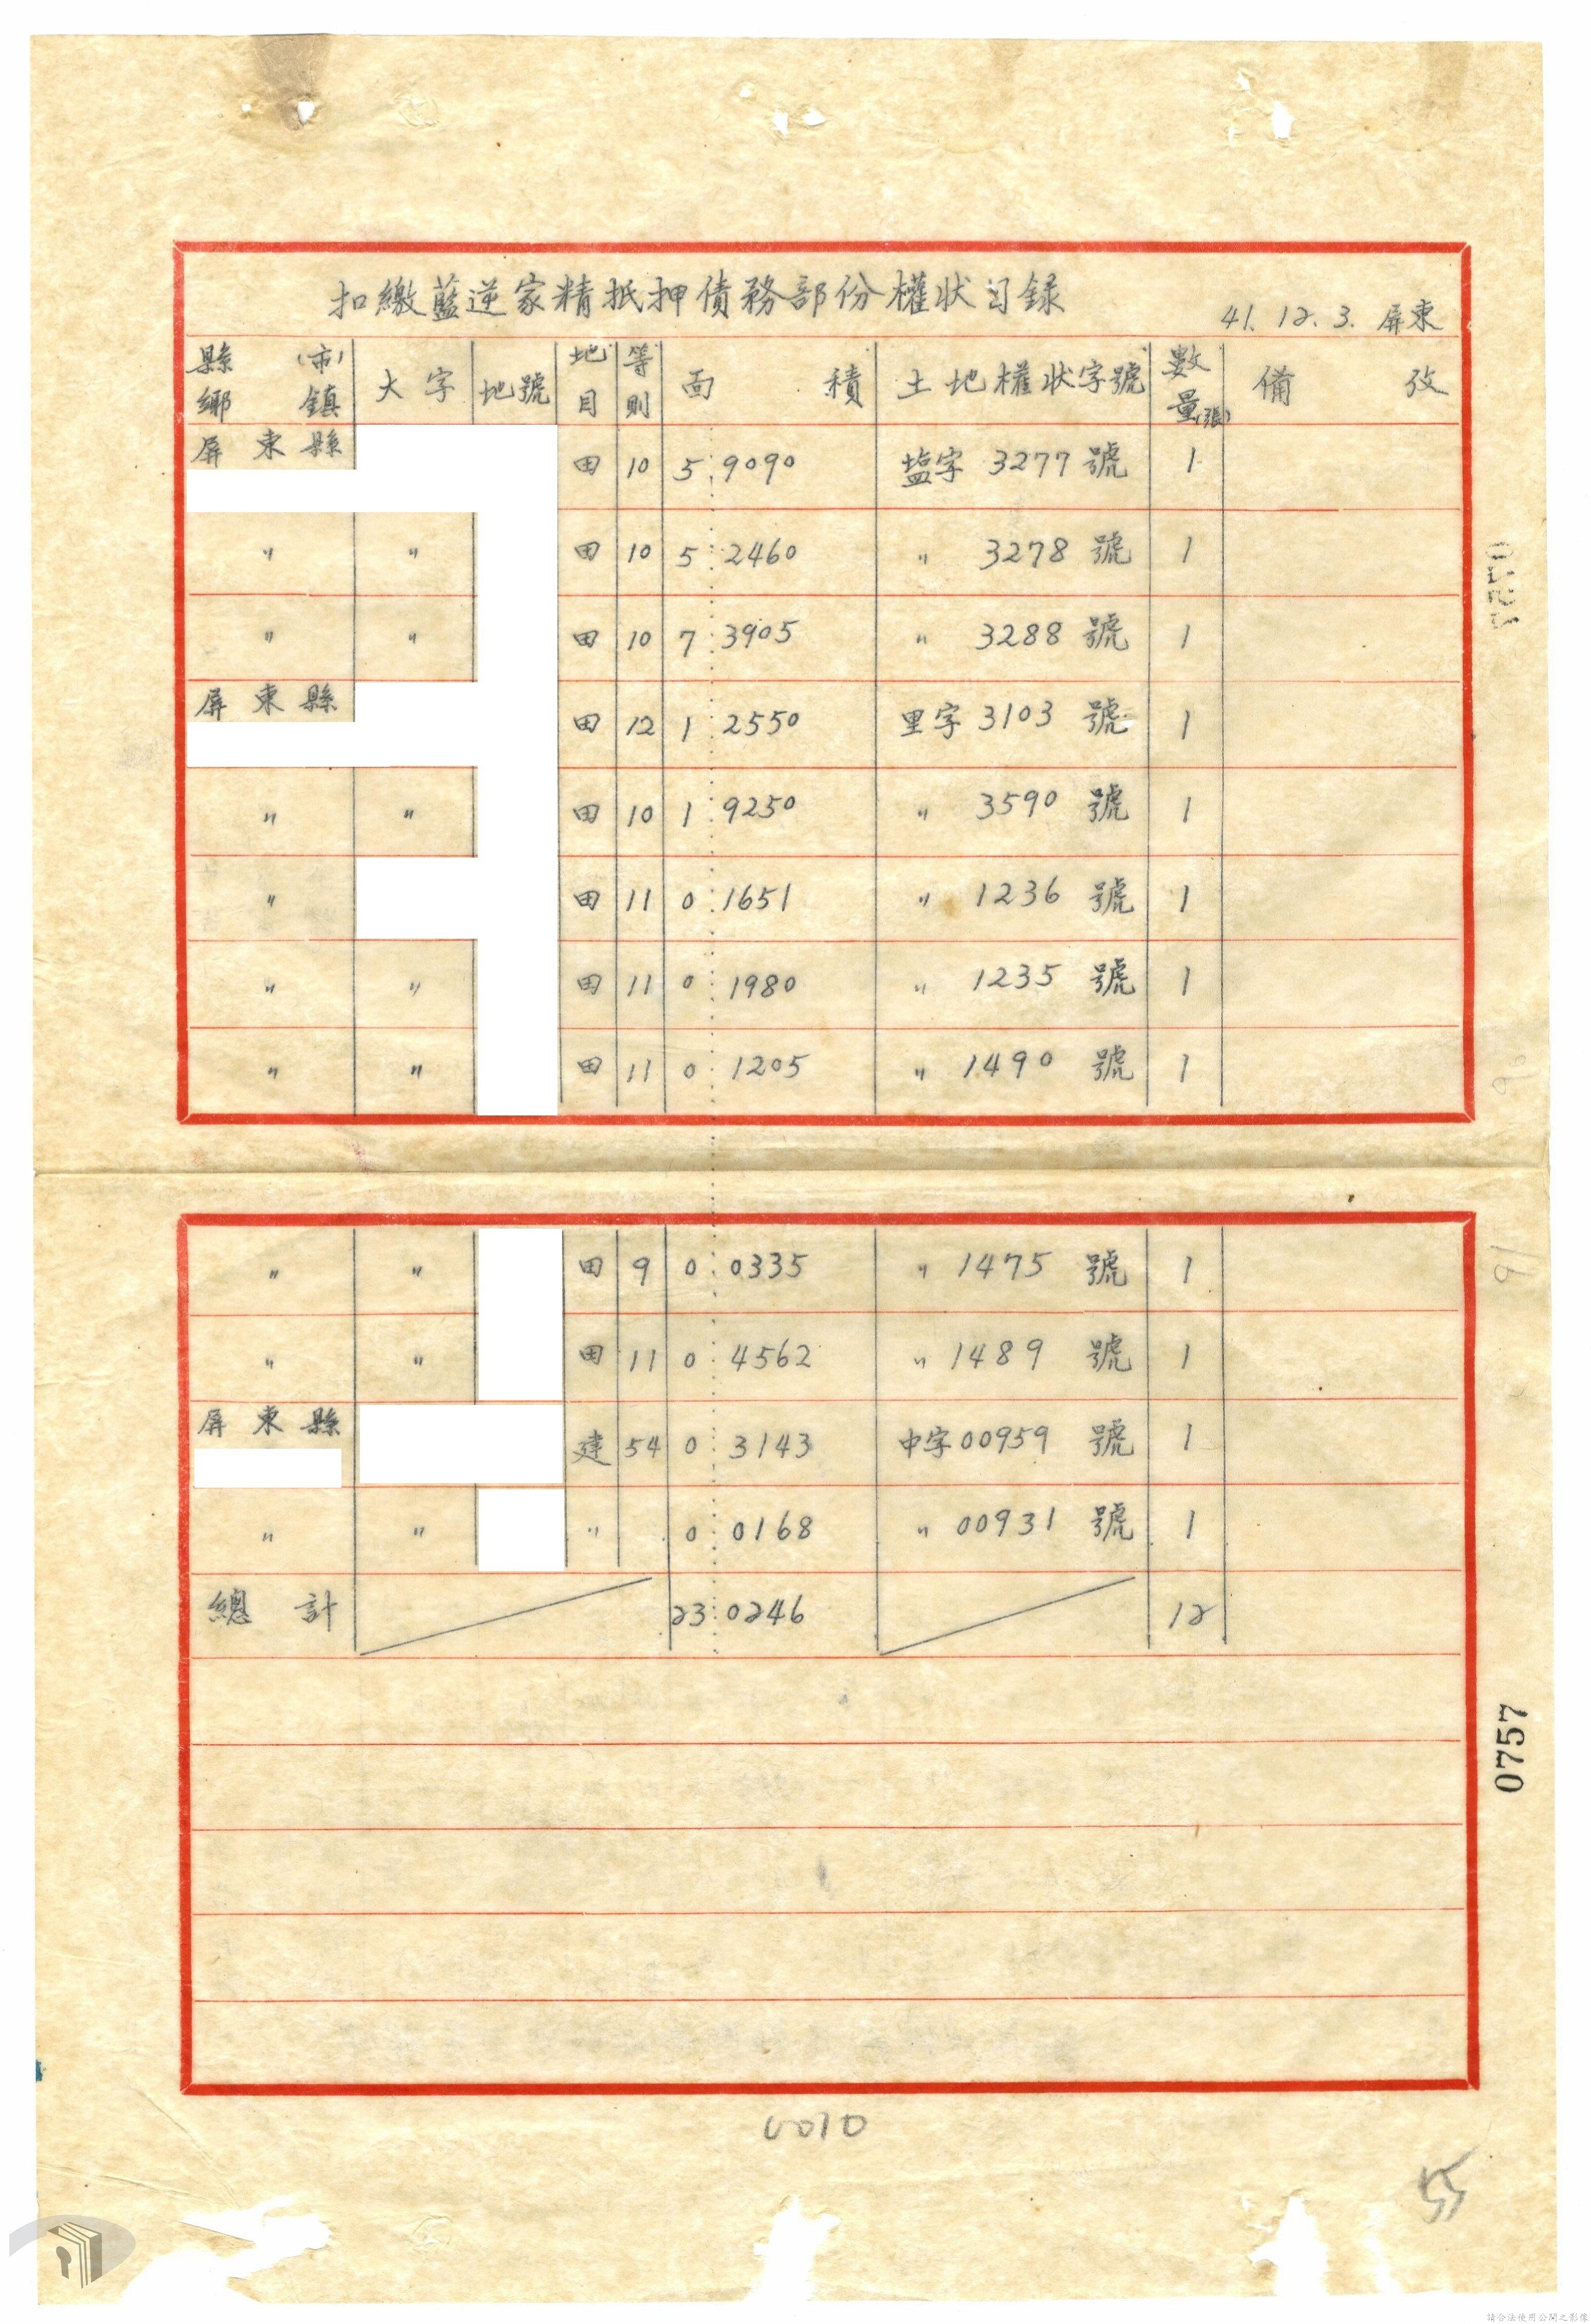 扣繳藍逆家精抵押債務部份權狀目録
41. 12. 3. 屏東
縣(市)鄉鎮 大字 地號 地目 等則 面積 土地權狀字號 數量(張) 備攷
屏東縣 田 10 5.9090 塩字 3277 號 1
〃 〃 田 10 5.2460 〃 3278 號 1
〃 〃 田 10 7.3905 〃 3288 號 1
屏東縣 田 12 1.2550 里字 3103 號 1
〃 〃 田 10 1.9250 〃 3590 號 1
〃 田 11 0.1651 〃 1236 號 1
〃 〃 田 11 0.1980 〃 1235 號 1
〃 〃 田 11 0.1205 〃 1490 號 1
〃 〃 田 9 0.0335 〃 1475 號 1
〃 〃 田 11 0.4562 〃 1489 號 1
屏東縣 建 54 0.3143 中字 00959 號 1
〃 〃 〃 0.0168 〃 00931 號 1
總計 23.0246 12
0757
0010
55
請合法使用公開之影像